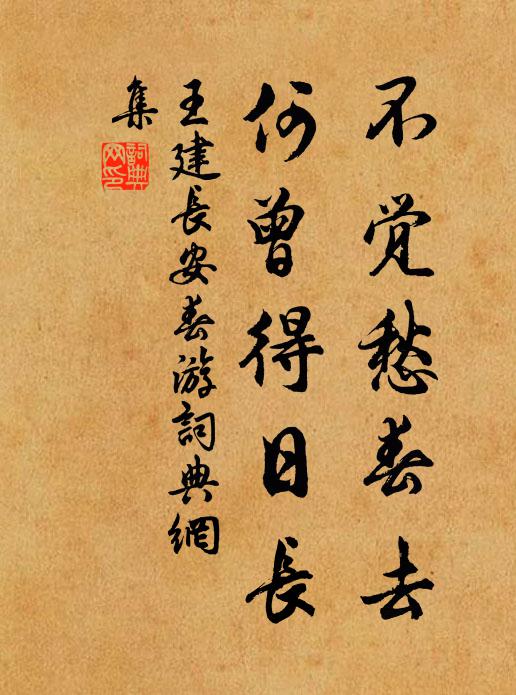 不觉愁春去
何曾得日長
王建長安春游詞典網
集
詞典
网印